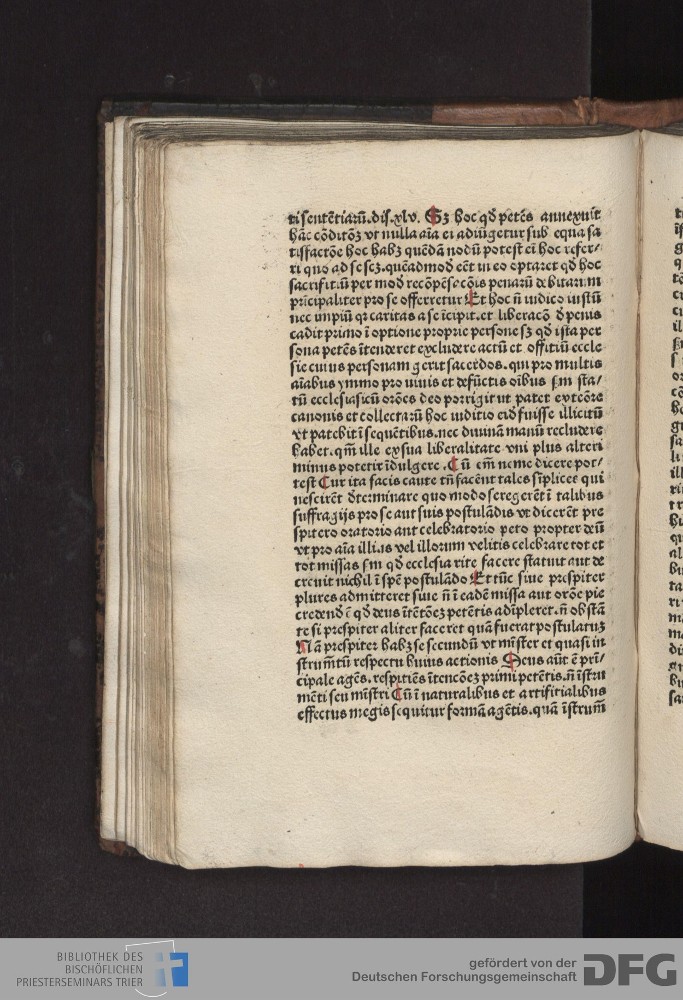 ti sentētiarū.dis.xlv. Sꝫ hoc qď petēs annexuit
hāc cōditōꝫ vt nulla aīa ei adiūgetur sub equa sa
tisfactōe hoc habꝫ quēdā nodū potest eī hoc refer/
ri quo ad se scꝫ.quēadmoď eēt in eo optaret qď hoc
sacrifitiū per moď recōpēse cōis penarū debitarum
prīcipaliter pro se offerretur Et hoc n̄ iudico iustū
nec impiū qr caritas a se īcipit.et liberacō ď penis
cadit primo ī optione proprie persone sꝫ qď ista per
sona petēs ītenderet excludere actū et offitiū eccle
sie cuius personam gerit sacerdos.qui pro multis
aīabus ymmo pro viuis et defūctis oībus ẜm sta/
tū ecclesiasticū orōes deo porrigit ut patet ex tēore
canonis et collectarū hoc iuditio eiď fuisse illicitū
vt patebit ī sequētibus.nec diuinā manū recludere
habet.qm̄ ille ex sua liberalitate vni plus alteri
minus potetir īdulgere. Cū em̄ neme dicere pot/
test Cur ita facis caute tn̄ facēnt tales sīplicee qui
nescirēt ďterminare quo modo se regerēt ī talibus
suffragijs pro se aut suis postulādis vt dicerēt pre
spitero oratorio aut celebratorio peto propter deū
vt pro aīa illius vel illorum velitis celebrare tot et
tot missas ẜm qď ecclesia rite facere statuit aut de
creuit nichil ī spē postulādo Et tūc siue prespiter
plures admitteret siue n̄ ī eadē missa aut orōe pie
credendū ē qď deus ītētōeꝫ petētis adīpleret.n̄ obstā
te si prespiter aliter faceret quā fuerat postulatuꝫ
Nā prespiter habꝫ se secundū vt mīster et quasi in
strumētū respectu huius actionis Deus aūt ē prī/
cipale agēs.respitiēs ītencōeꝫ primi petētis.n̄ īstru
mēti seu mīstri Cū ī naturalibus et artifitialibus
effectus megis sequitur formā agētis.quā īstrum̄
BIBLIOTHEK DES
BISCHÖFLICHEN
PRIESTERSEMINARS TRIER
gefördert von der
Deutschen Forschungsgemeinschaft
DFG